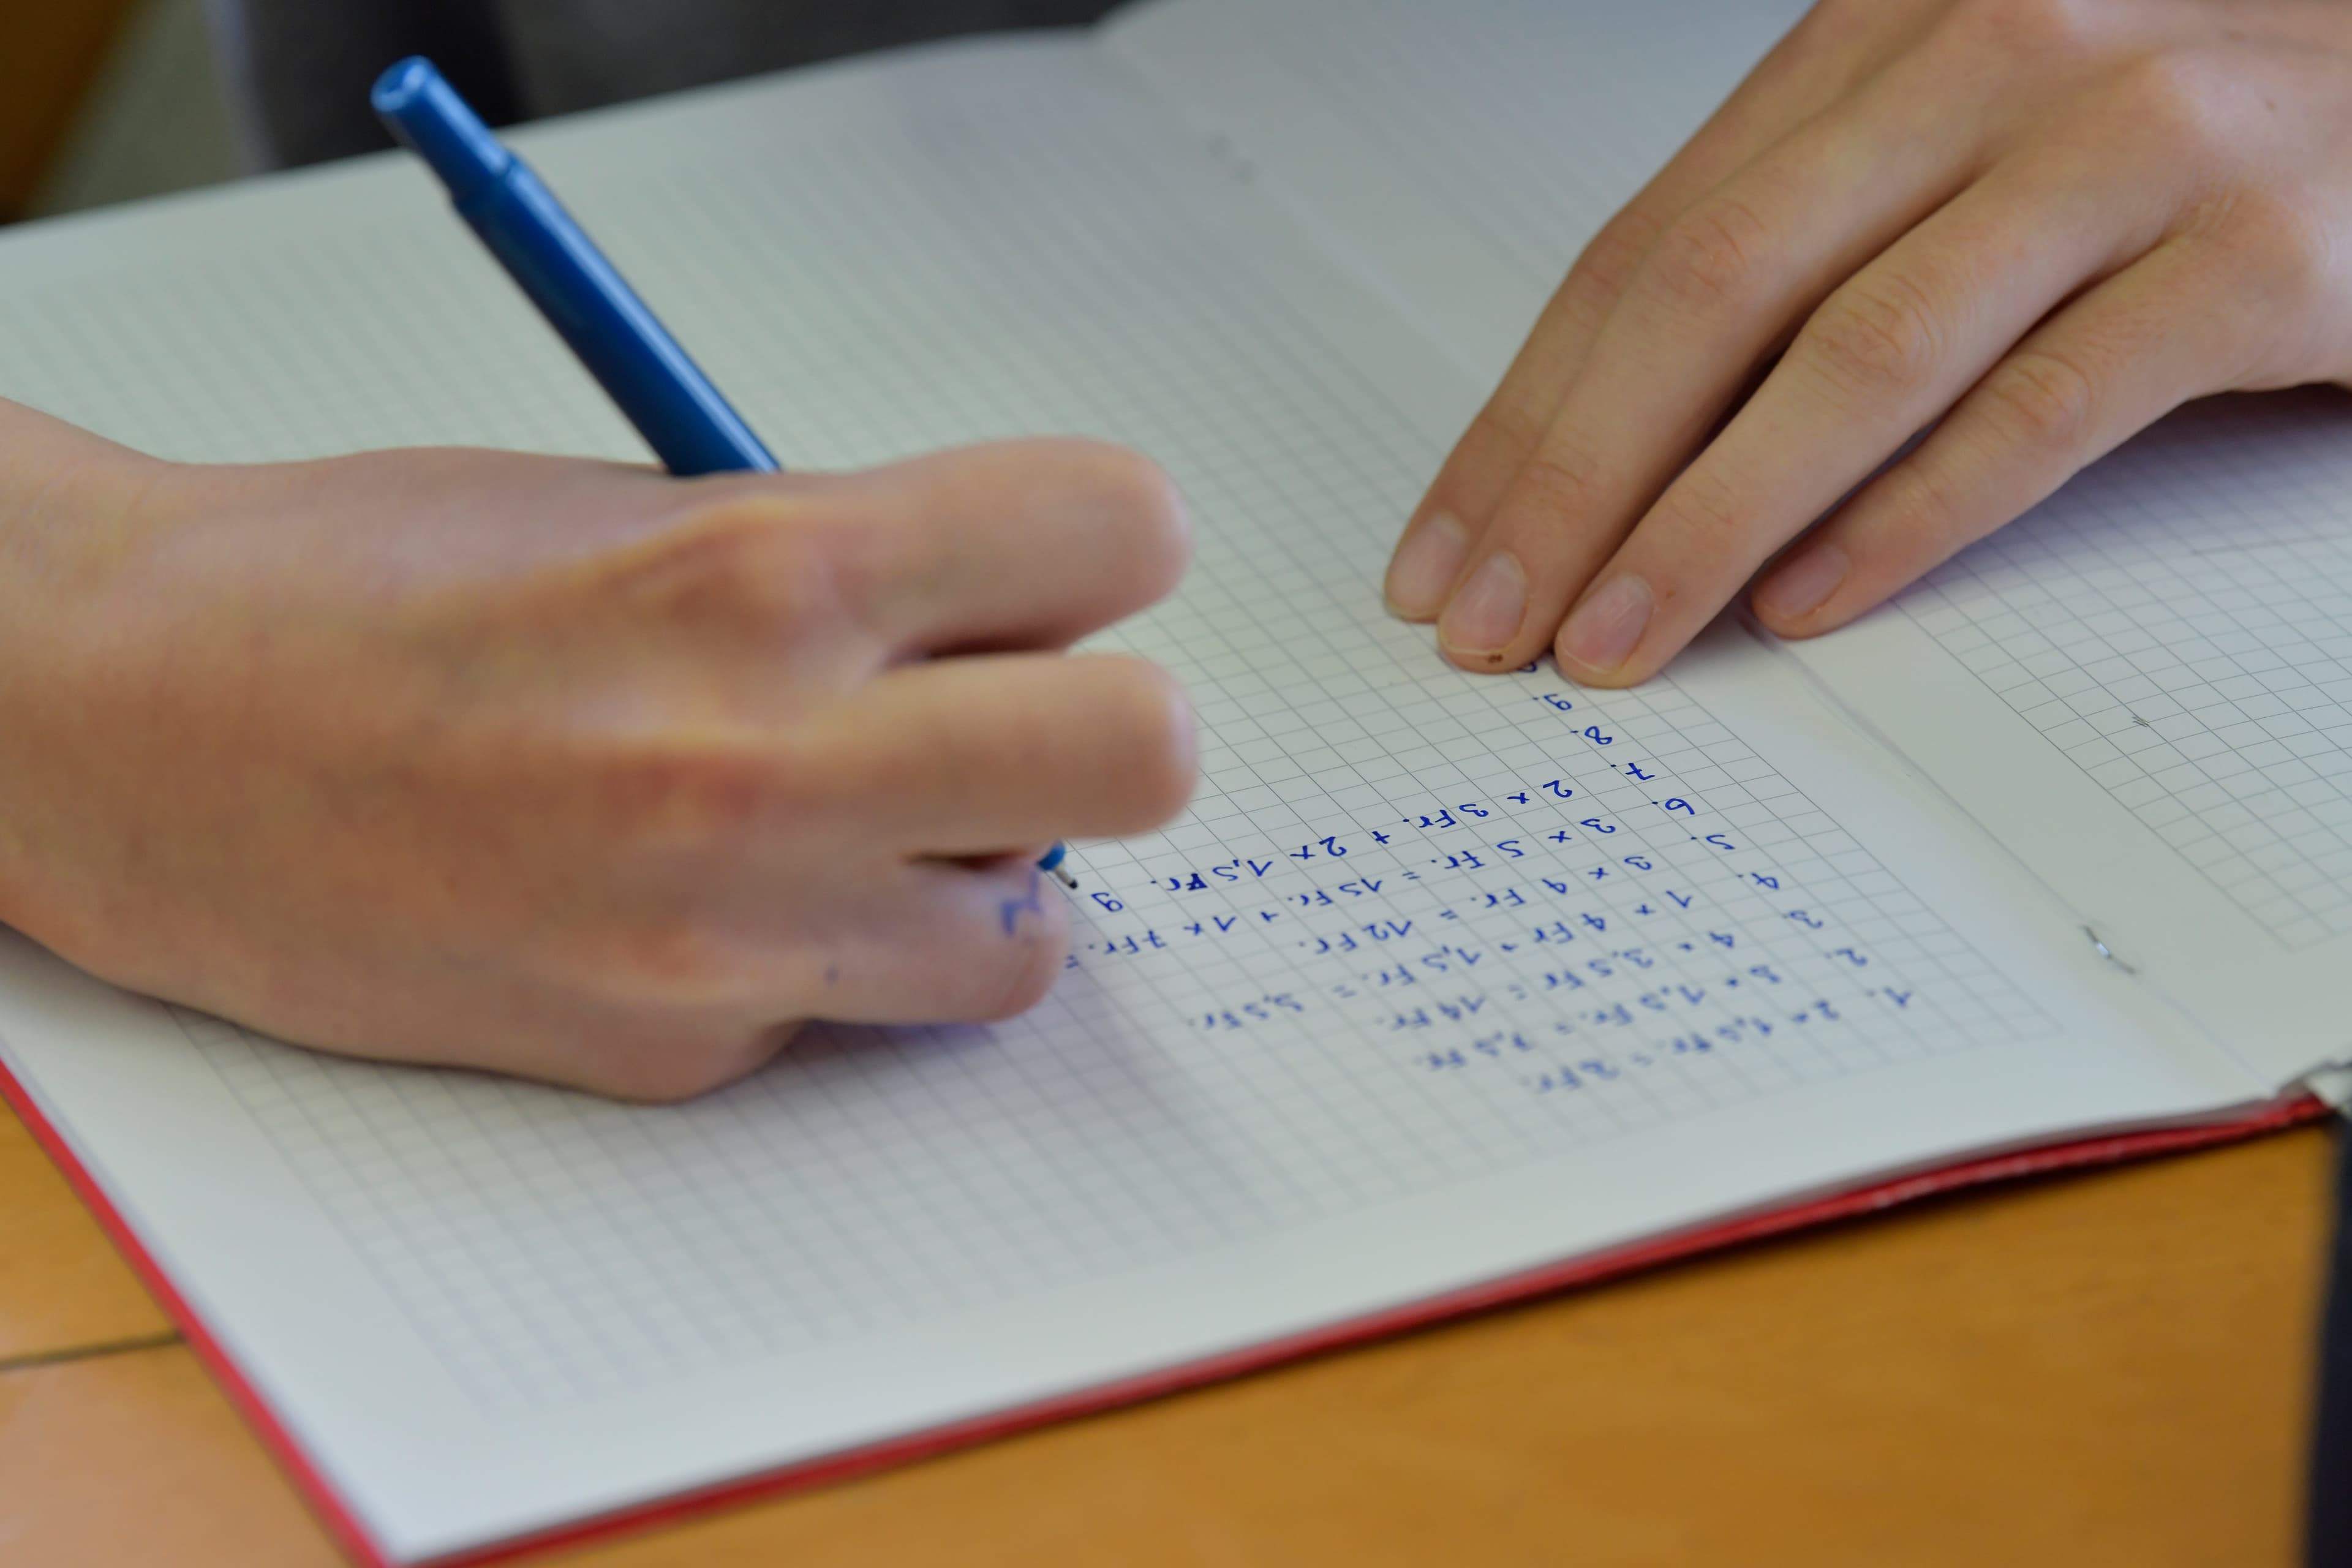 1. 2 x 1,5 Fr. = 3 Fr.
2. 5 x 1,5 Fr. = 7,5 Fr.
3. 4 x 3,5 Fr = 14 Fr.
4. 1 x 4 Fr + 1,5 Fr. = 5,5 Fr.
5. 3 x 4 Fr. = 12 Fr.
6. 3 x 5 Fr. = 15 Fr. + 1 x 7 Fr. =
7. 2 x 3 Fr. + 2 x 1,5 Fr. 9
8.
9.